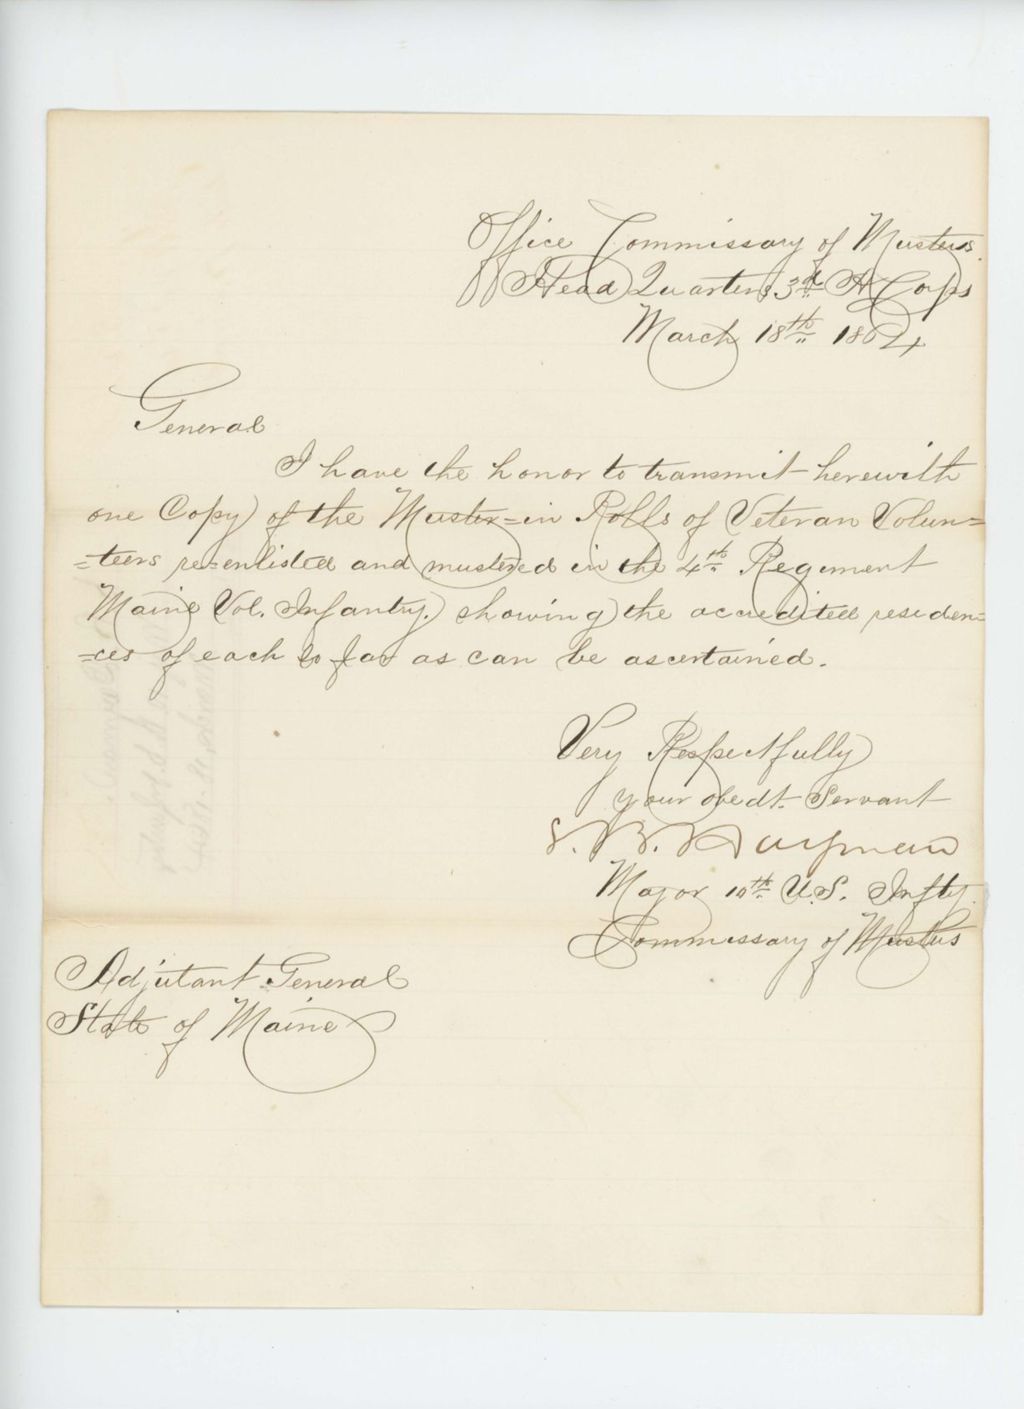 Office Commissary of Musters.
Head Quarters 3d A Corps
March 18th 1864
General
I have the honor to transmit herewith
one Copy of the Muster=in Rolls of Veteran Volun=
=teers re=enlisted and mustered in the 4th Regiment
Maine Vol. Infantry. showing the accredited residen=
=ces of each so far as can be ascertained.
Very Respectfully
your obedt. Servant
S. B. Hayman
Major 10th U.S. Infty.
Commissary of Musters
Adjutant General
State of Maine